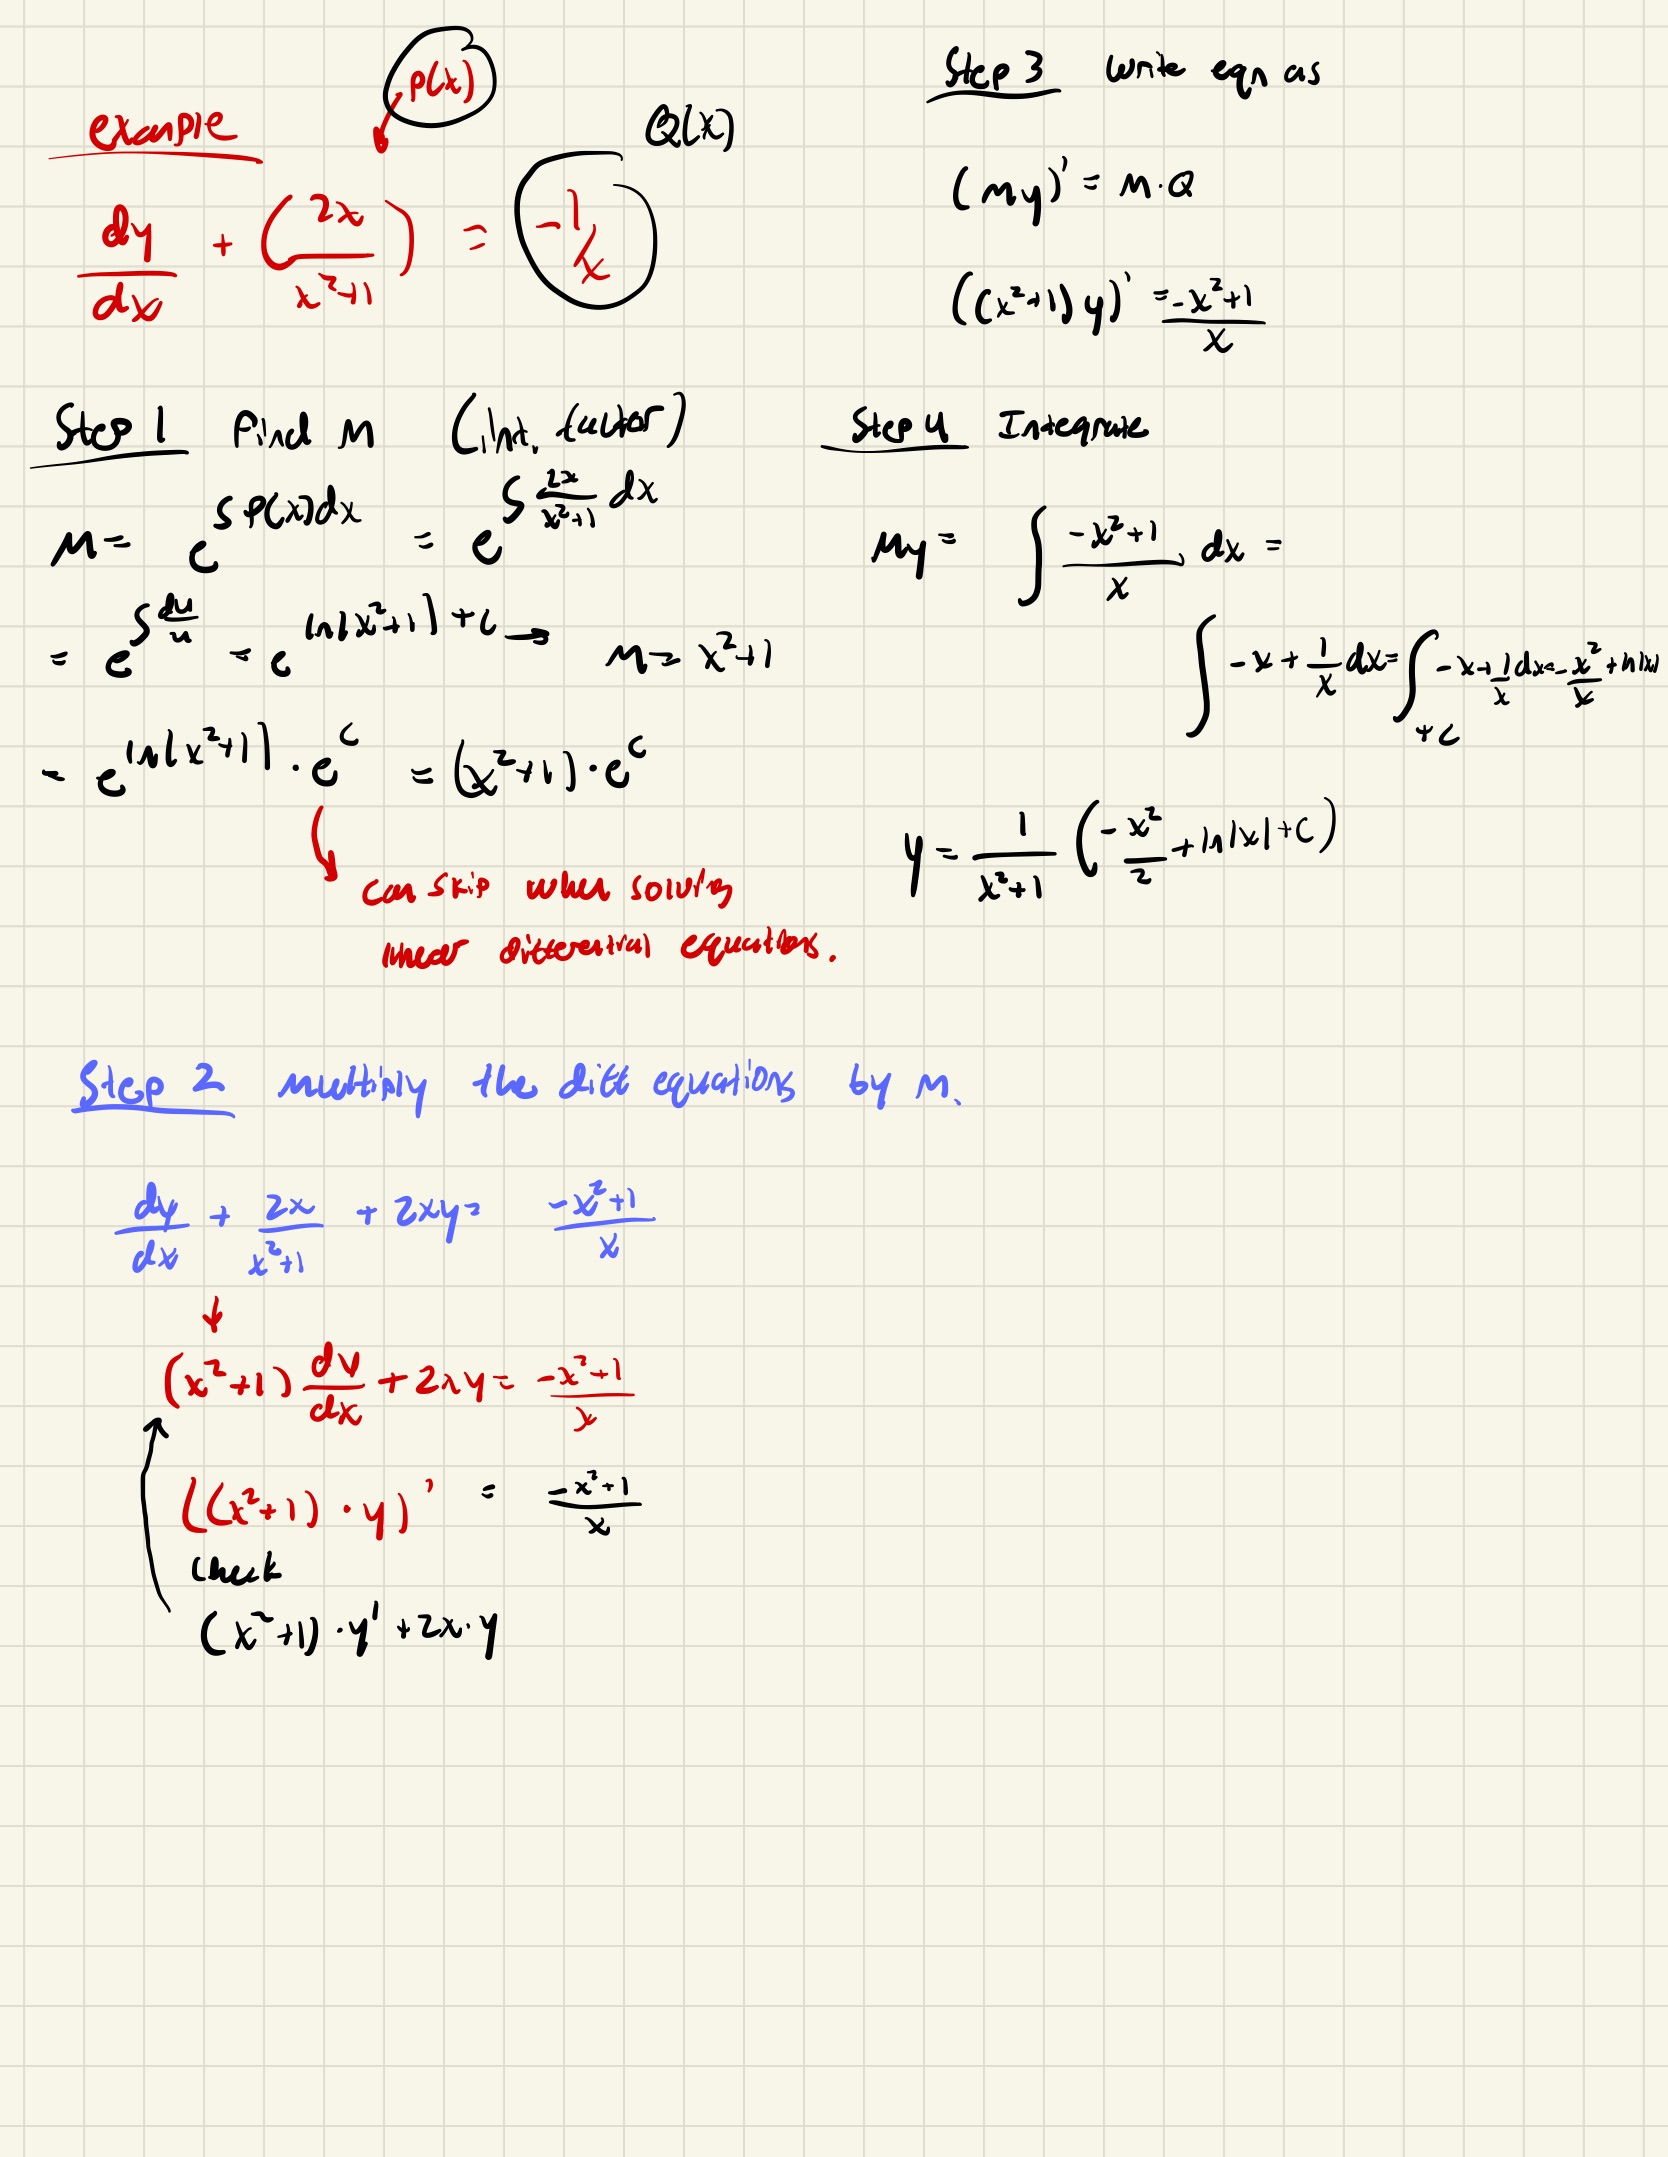 example
P(x)
Q(x)
dy/dx + (2x/(x²+1)) = -1/x
Step 1 Find M (int. factor)
M = e^(∫P(x)dx) = e^(∫ 2x/(x²+1) dx)
= e^(∫du/u) = e^(ln|x²+1| + c) → M = x²+1
= e^(ln|x²+1|) · e^c = (x²+1) · e^c
can skip when solving
linear differential equations.
Step 2 multiply the diff equations by M.
dy/dx + 2x/(x²+1) + 2xy = (-x²+1)/x
↓
(x²+1) dy/dx + 2xy = (-x²+1)/x
((x²+1) · y)' = (-x²+1)/x
check
(x²+1) · y' + 2x · y
Step 3 write eqn as
(My)' = M·Q
((x²+1) y)' = (-x²+1)/x
Step 4 Integrate
My = ∫ (-x²+1)/x dx =
∫ -x + 1/x dx = ∫ -x + 1/x dx = -x²/x + ln|x|
+ C
y = 1/(x²+1) (-x²/2 + ln|x| + C)